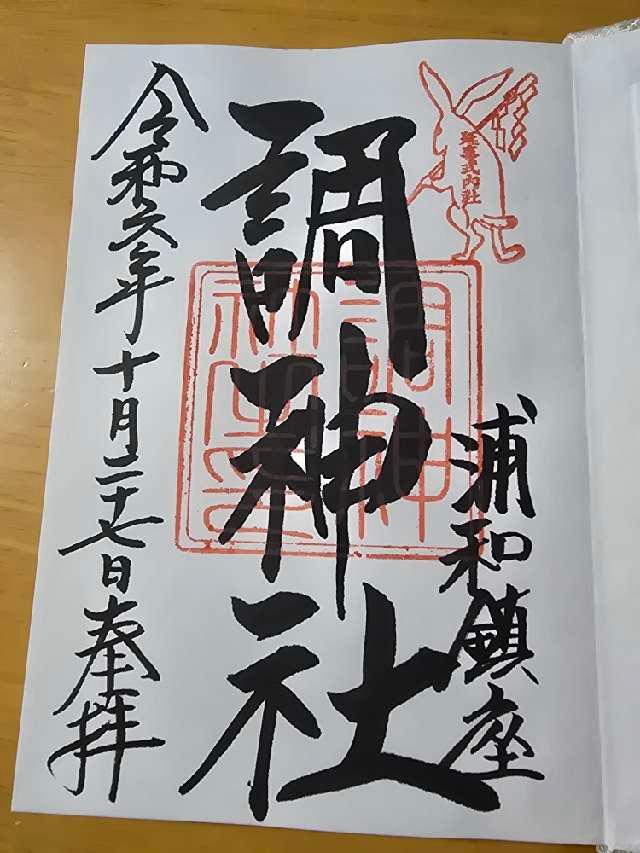 延喜式内社
浦和鎮座
調神社
調神社印
令和六年十月二十七日奉拝